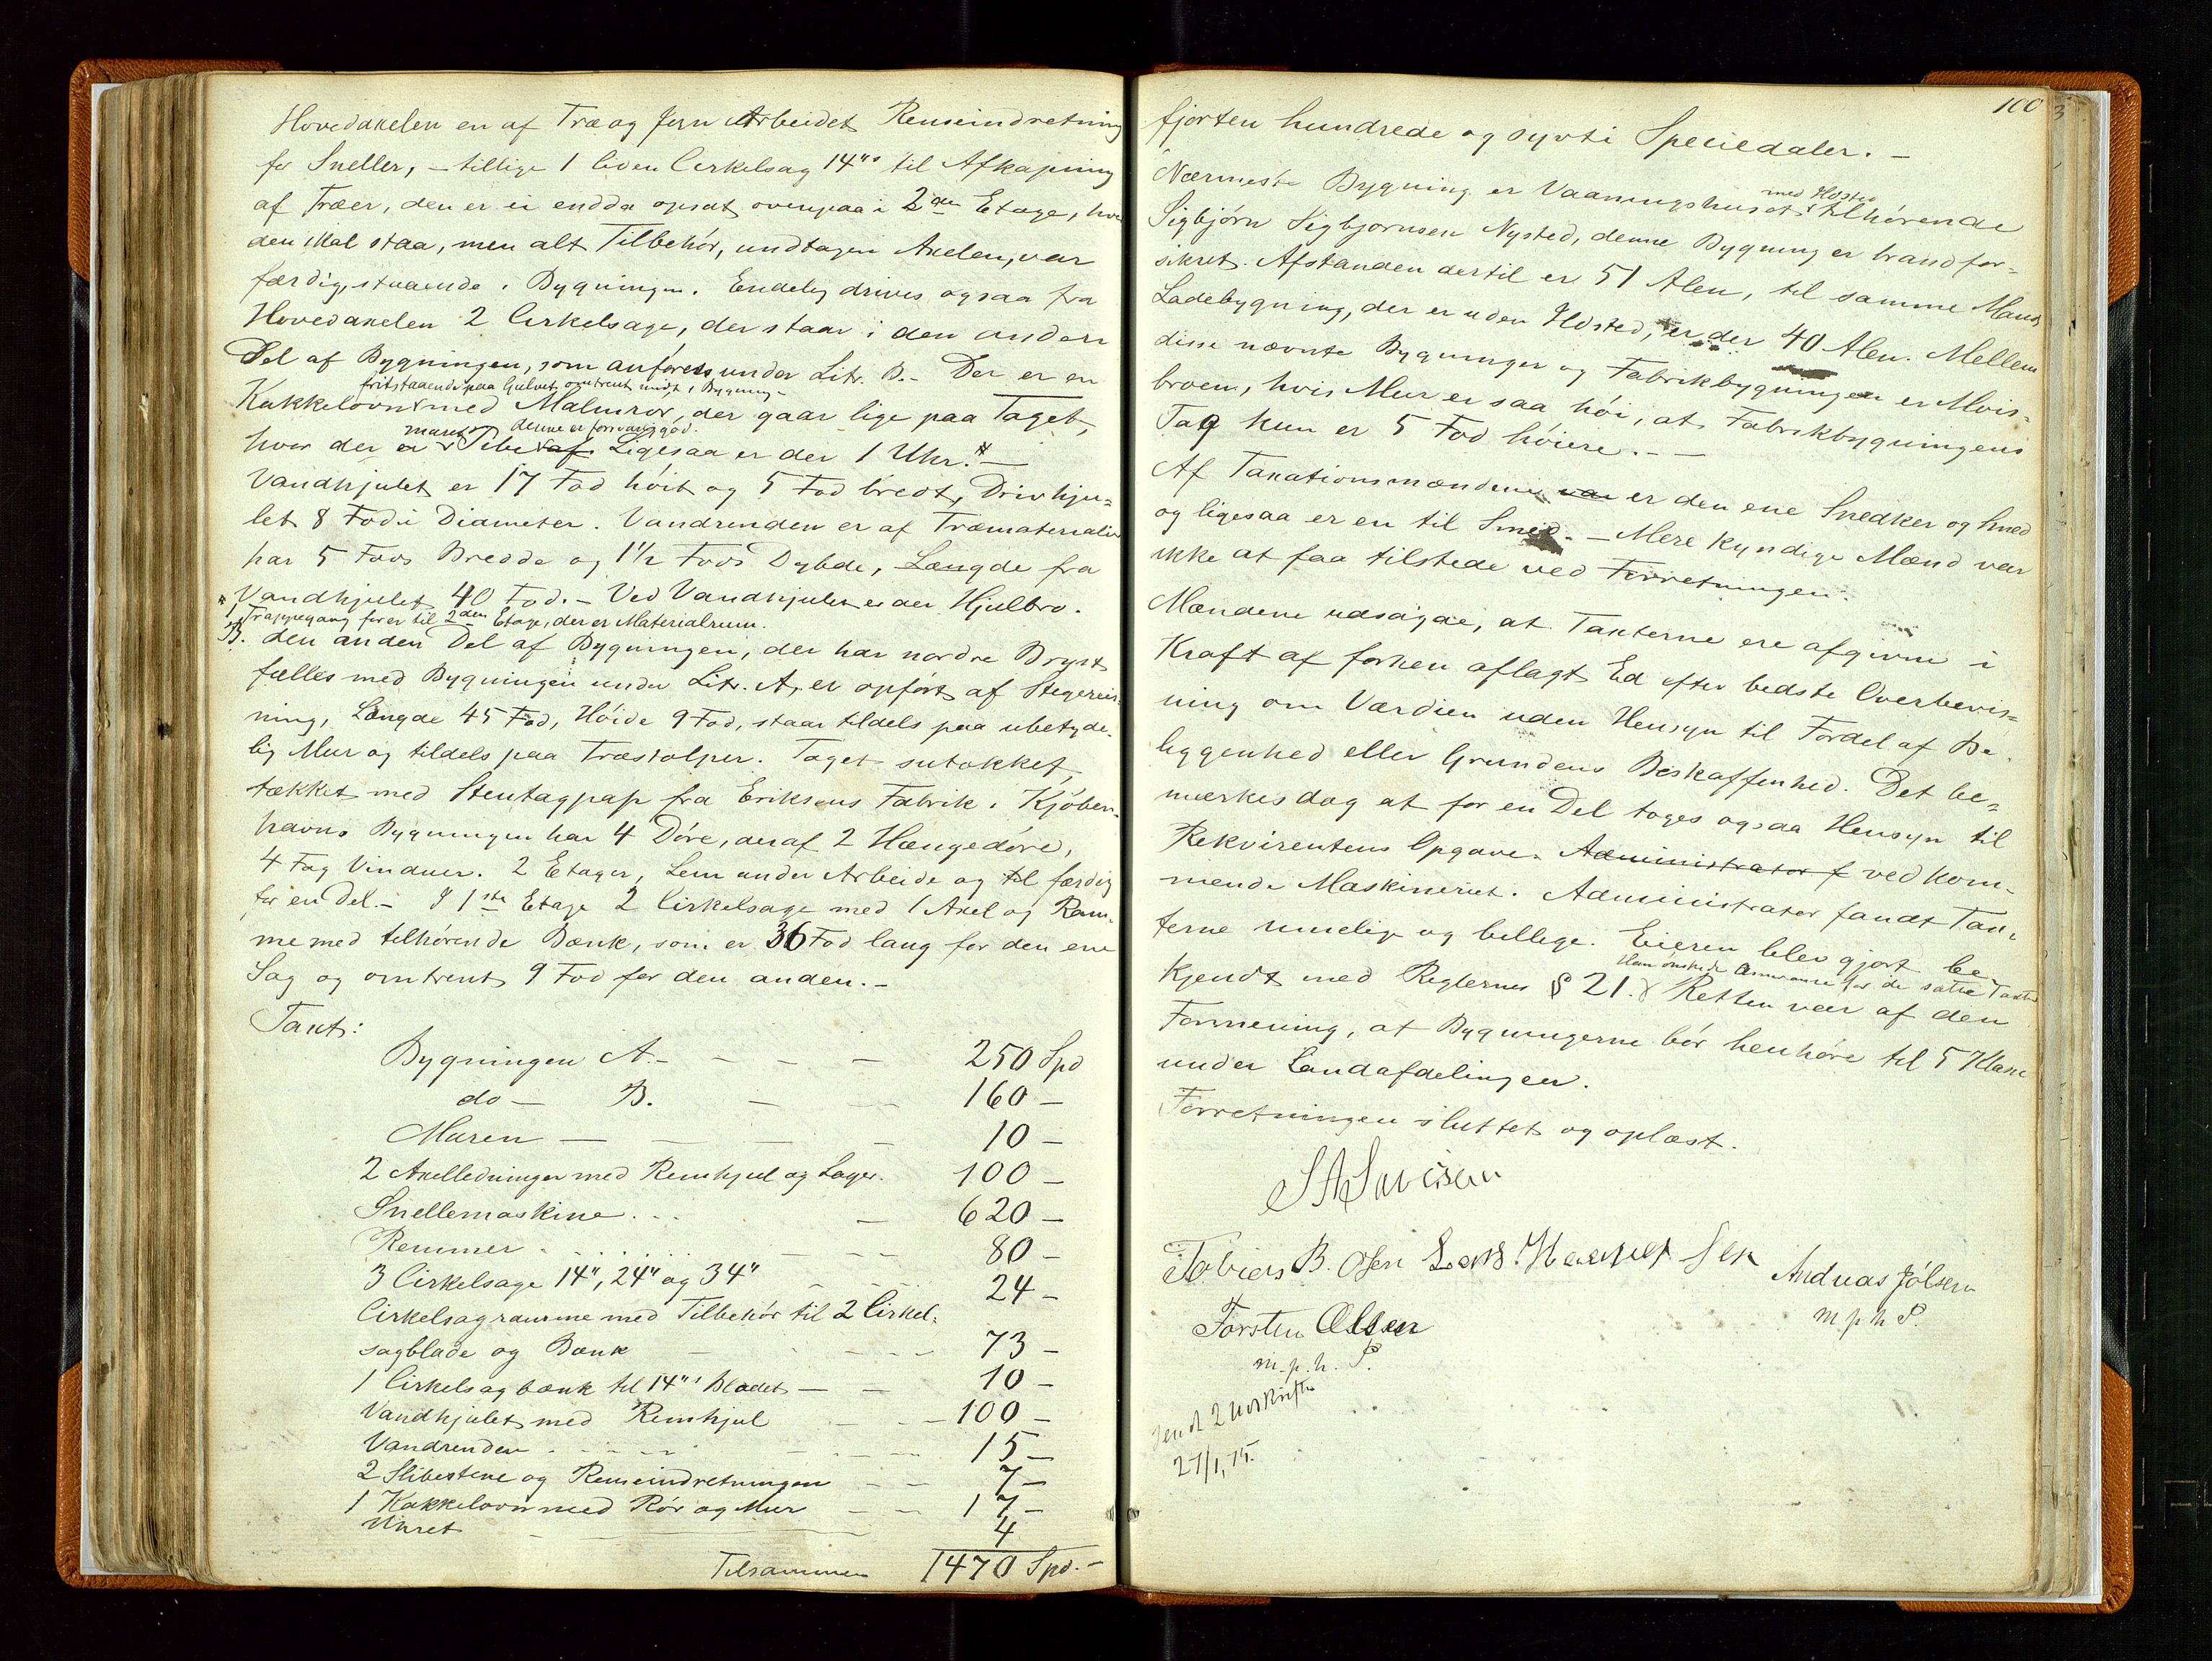 Hovedaxelen en af Træ og Jern Arbeidet Renseindretning
for Sneller, – tillige 1 liden Cirkelsag 14"s til Afkapning
af Træer, den er ei endda opsat ovenpaa i 2den Etage, hvor
den skal staa, men alt Tilbehør, undtagen Axelen, var
færdig, staaende i Bygningen. Endelig drives ogsaa fra
Hovedaxelen 2 Cirkelsage, der staar i den anden
Del af Bygningen, som anføres under Litr. B. – Der er en
fritstaaende paa Gulvet, omtrent midt i Bygning
Kakkelovn med Malmrør, der gaar lige paa Taget,
muret denne er forsvarlig god.
hvor der er Pibe af Ligesaa er der 1 Uhr. –
Vandhjulet er 17 Fod høit og 5 Fod bredt, Drivhju=
let 8 Fod i Diameter. Vandrenden er af Træmaterialier
har 5 Fods Bredde og 1½ Fods Dybde, Længde fra
Vandhjulet 40 Fod. – Ved Vandhjulet er der Hjulbro.
1 Trappegang fører til 2den Etage, der er Materialrum.
B. den anden Del af Bygningen, der har nordre Bryst
fælles med Bygningen under Litr. A, er opført af Stegereis
ning, Længde 45 Fod, Høide 9 Fod, staar tildels paa ubetyde-
lig Mur og tildels paa Træstolper. Taget sutækket,
tækket med Stentagpap fra Eriksens Fabrik i Kjøben-
havn. Bygningen har 4 Døre, deraf 2 Hængedøre,
4 Fag Vinduer. 2 Etager, Lem under Arbeide og til færdig
for en Del. – I 1ste Etage 2 Cirkelsage med 1 Axel og Ram-
me med tilhørende Bænk, som er 36 Fod lang for den ene
Sag og omtrent 9 Fod for den anden. –
Taxt:
Bygningen A. – 250 Spd
do – B. – 160 –
Muren – 10 –
2 Axelledninger med Remhjul og Lager. 100 –
Snellemaskine . . . – 620 –
Remmer – 80 –
3 Cirkelsage 14", 24" og 34" 24 –
Cirkelsagramme med Tilbehør til 2 Cirkel=
sagblade og Bænk – 73 –
1 Cirkelsagbænk til 14"s Bladet – 10 –
Vandhjulet med Remhjul – 100 –
Vandrenden – 15 –
2 Slibestene og Renseindretningen – 7 –
1 Kakkelovn med Rør og Mur – 17 –
Uhret – 4
Tilsammen 1470 Spd. –
100
3
fjorten hundrede og sytti Speciedaler. –
med Ildsted
Nærmeste Bygning er Vaaningshuset tilhørende
Sigbjørn Sigbjørnsen Nysted, denne Bygning er brandfor=
sikret. Afstanden dertil er 51 Alen, til samme Mands
Ladebygning, der er uden Ildsted, er der 40 Alen. Mellem
disse nævnte Bygninger og Fabrikbygningen er
broen, hvis Mur er saa høi, at Fabrikbygningens
Tag kun er 5 Fod høiere. – –
Af Taxationsmændene var er den ene Snedker og Smed
og ligesaa er en til Smed. – Mere kyndige Mænd var
ikke at faa tilstede ved Forretningen.
Mændene udsagde, at Taxterne ere afgivne i
Kraft af forhen aflagt Ed efter bedste Overbevis=
ning om Værdien uden Hensyn til Fordel af Be-
liggenhed eller Grundens Beskaffenhed. Det be=
mærkes dog at for en Del toges ogsaa Hensyn til
Rekvirentens Opgave. Administrator f vedkom-
mende Maskineriet. Administrator fandt Tax-
terne rimelige og billige. Eieren blev gjort be-
Han ønskede Assurance for de satte Taxter
kjendt med Reglernes § 21. Retten var af den
Formening, at Bygningerne bør henhøre til 5 Klasse
under Landafdelingen.
Forretningen sluttet og oplæst.
Tobias B. Osen Lars Hansen Andreas Jølsen
m p h P.
Torsten Olsen
m. p. h. P.
Sendt 2 Udskrifter
27/1, 75.